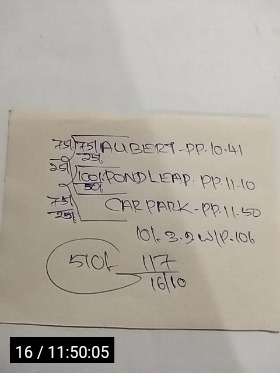 75/ 75/ AUBERT - PP. 10.41
25/ 25/
100/. PONDLEAP. PP. 11-10
50/
75/ CARPARK - PP. 11-50
25/
10/. 3.2 W/P. 106
510/. 117
16/10
16 / 11:50:05